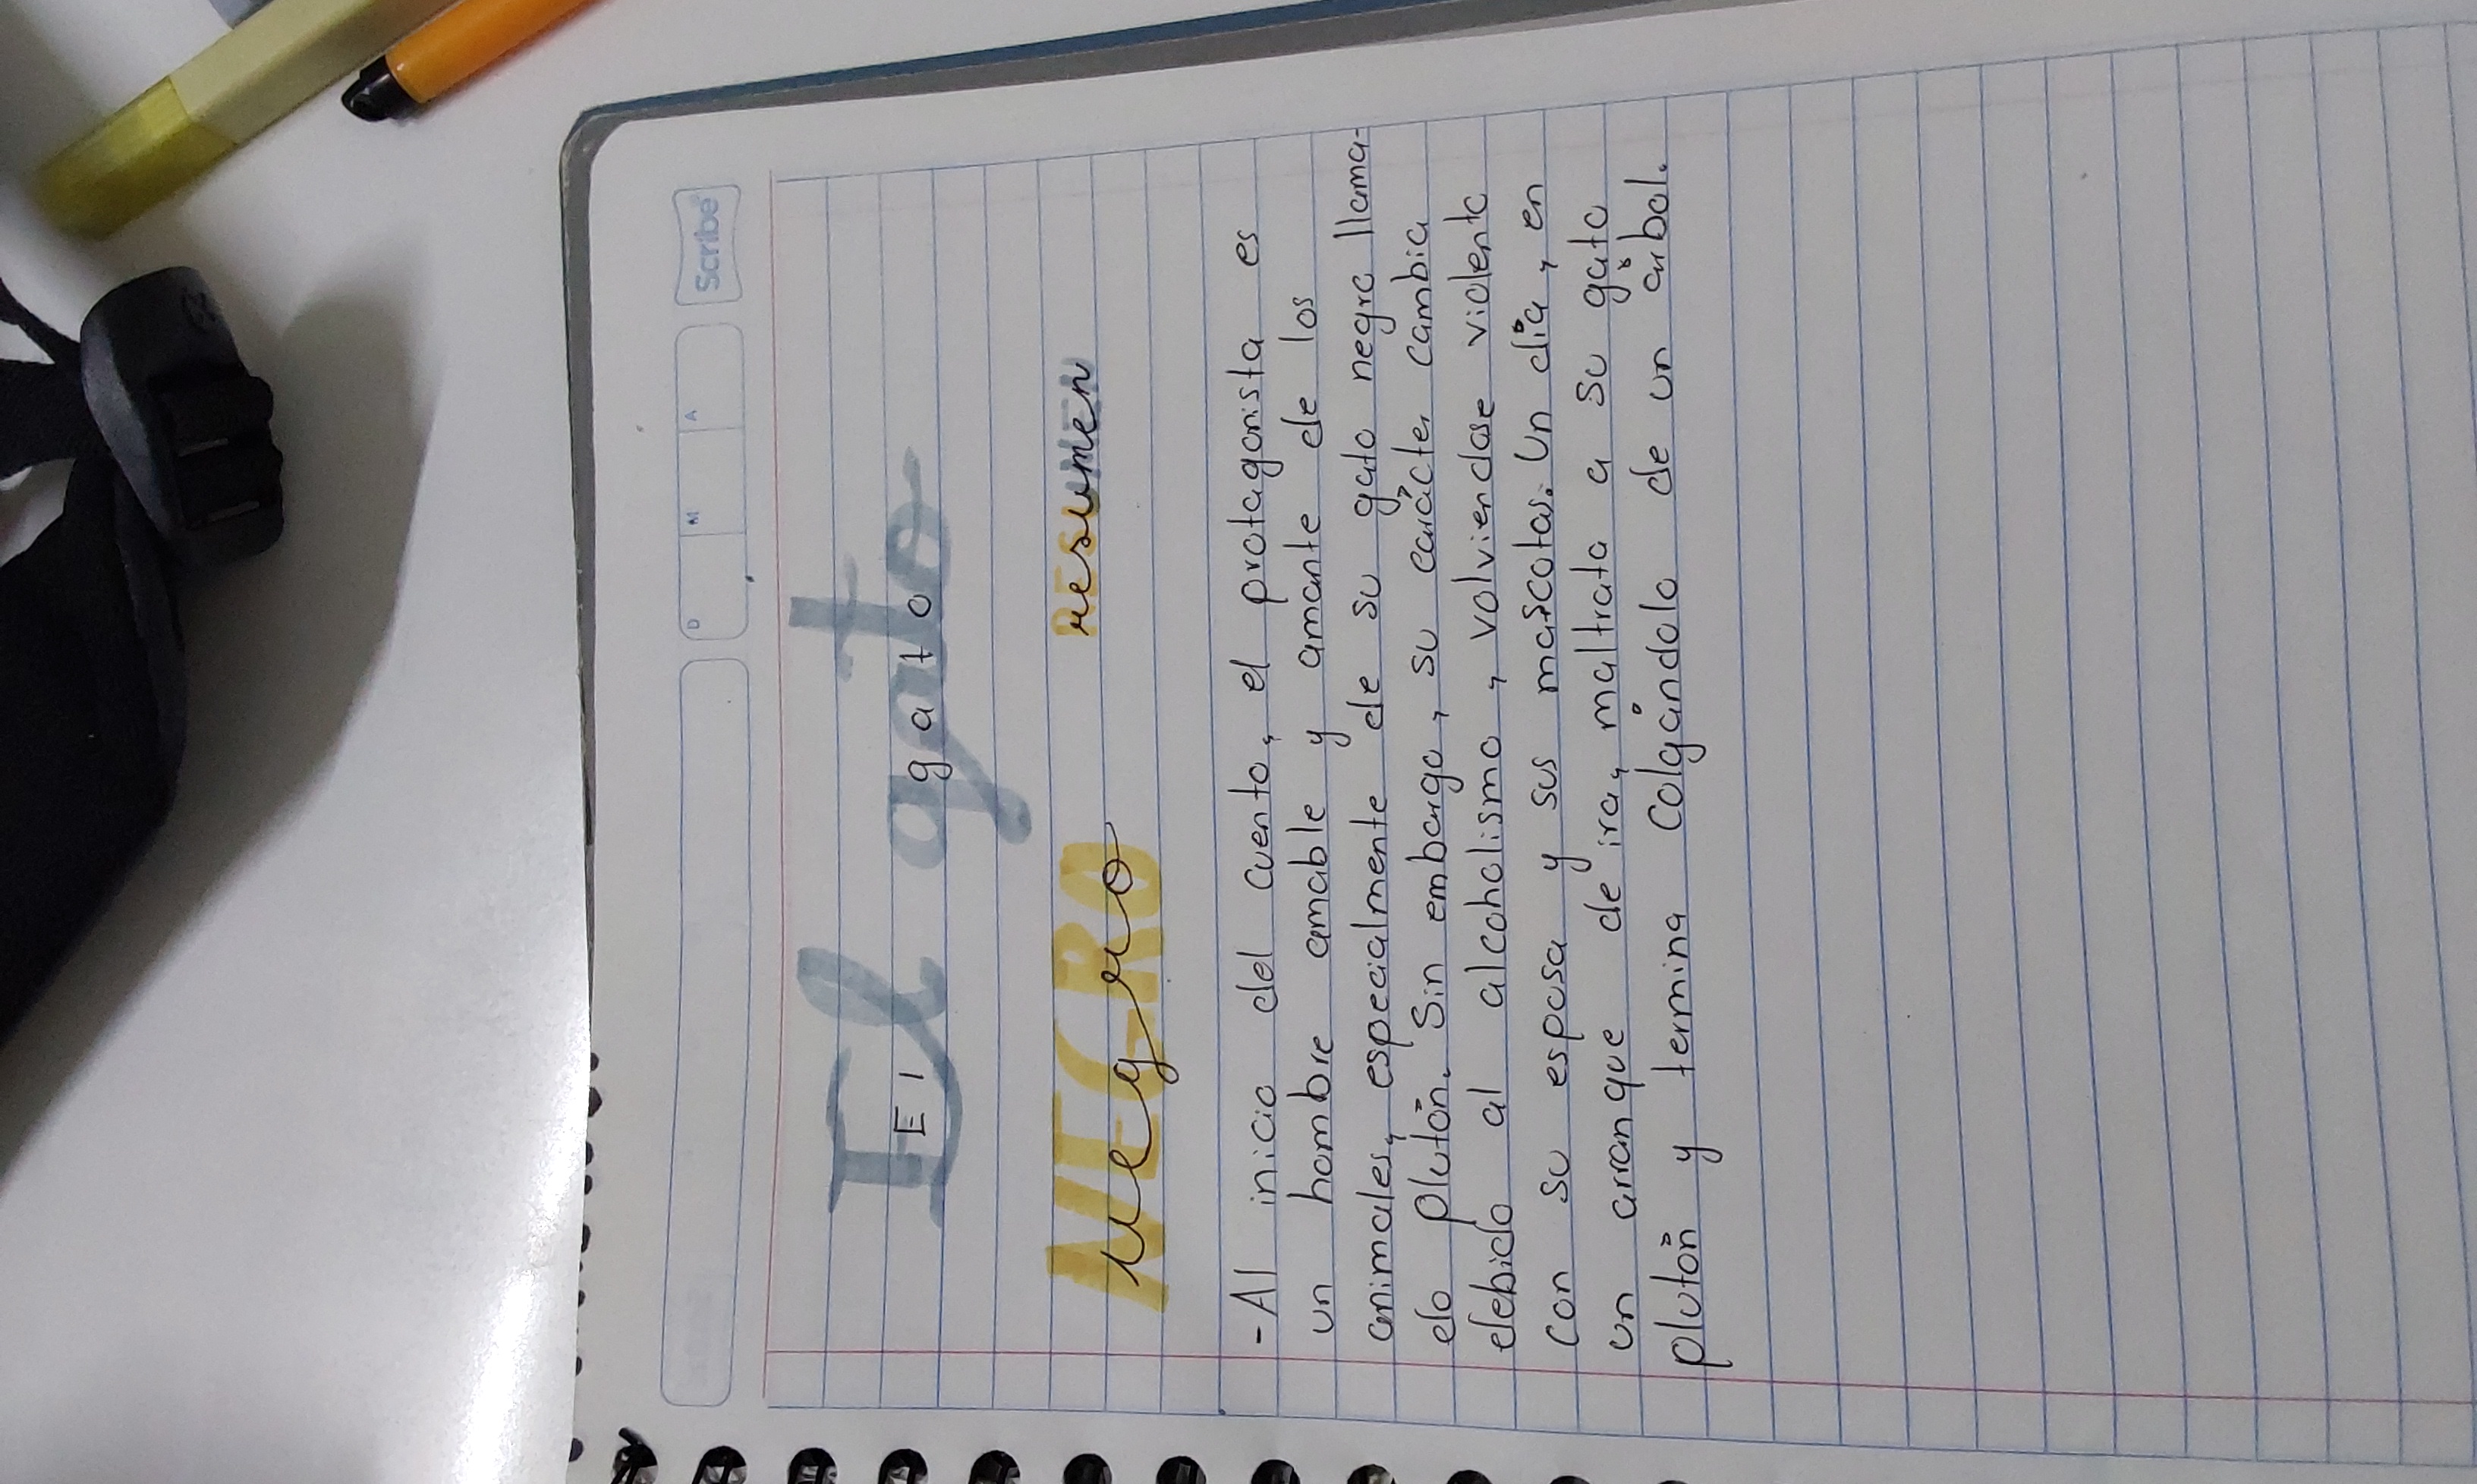 Scribe
D M A
El gato
El gato
NEGRO
negro
RESUMEN
resumen
-Al inicio del cuento, el protagonista es
un hombre amable y amante de los
animales, especialmente de su gato negro llama-
do plutón. Sin embargo, su carácter cambia
debido al alcoholismo, volviendose violento
con su esposa y sus mascotas. Un día, en
un arranque de ira, maltrata a su gato
plutón y termina colgándolo de un árbol.